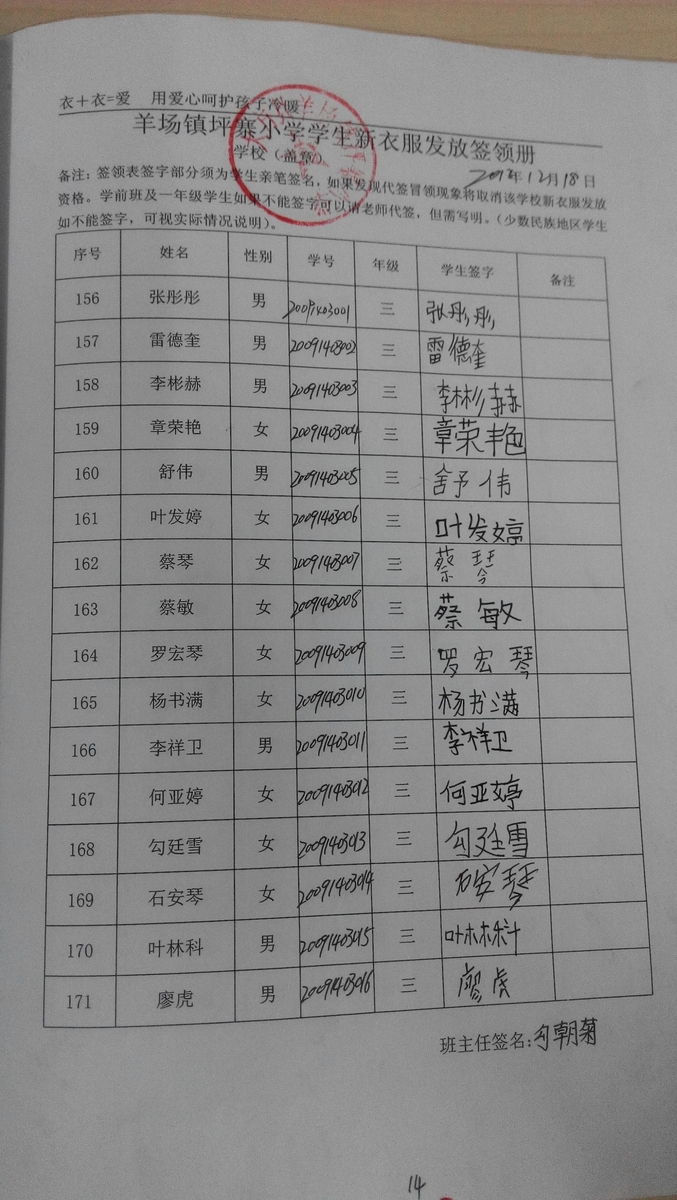 衣+衣=爱 用爱心呵护孩子冷暖
羊场镇坪寨小学学生新衣服发放签领册
学校（盖章） 2012年12月18日
备注：签领表签字部分须为学生亲笔签名，如果发现代签冒领现象将取消该学校新衣服发放
资格。学前班及一年级学生如果不能签字可以请老师代签，但需写明。（少数民族地区学生
如不能签字，可视实际情况说明）。
序号 姓名 性别 学号 年级 学生签字 备注
156 张彤彤 男 20091403001 三 张彤彤
157 雷德奎 男 20091403002 三 雷德奎
158 李彬赫 男 20091403003 三 李彬赫
159 章荣艳 女 20091403004 三 章荣艳
160 舒伟 男 20091403005 三 舒伟
161 叶发婷 女 20091403006 三 叶发婷
162 蔡琴 女 20091403007 三 蔡琴
163 蔡敏 女 20091403008 三 蔡敏
164 罗宏琴 女 20091403009 三 罗宏琴
165 杨书满 女 20091403010 三 杨书满
166 李祥卫 男 20091403011 三 李祥卫
167 何亚婷 女 20091403012 三 何亚婷
168 勾廷雪 女 20091403013 三 勾廷雪
169 石安琴 女 20091403014 三 石安琴
170 叶林科 男 20091403015 三 叶林科
171 廖虎 男 20091403016 三 廖虎
班主任签名：勾朝菊
14